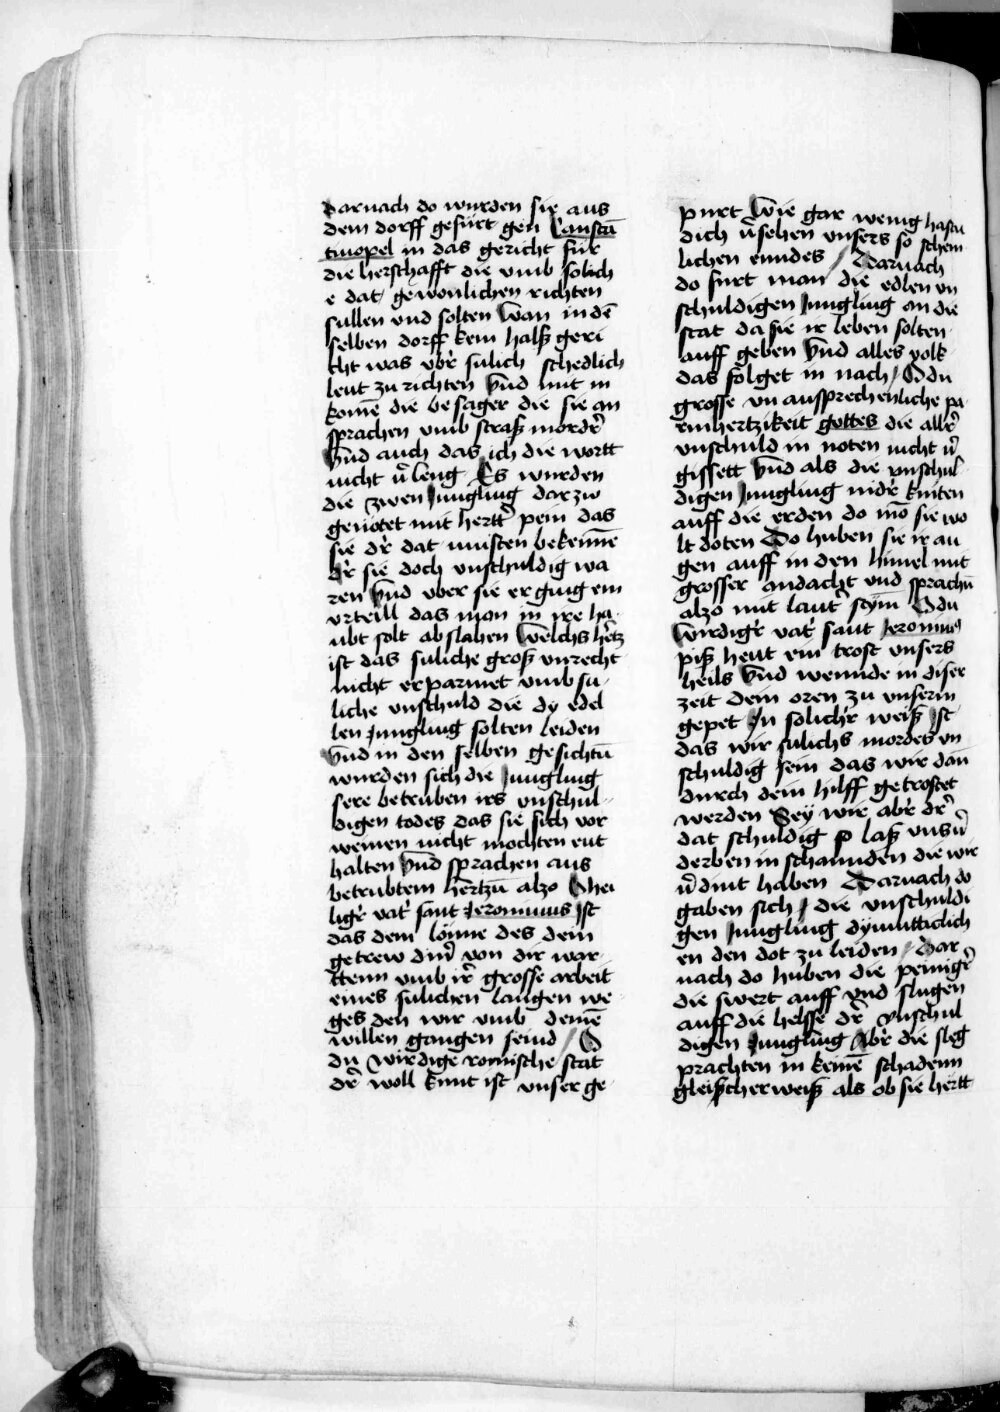 Darnach do wurden sie aus
dem dorff gefürt gen Constan
tinopel in das gericht für
die herschafft die vmb solich
e dat gewonlichen richten
sullen vnd solten Wan in dē
selben dorff kein halß geri
cht was vbr̄ sulich schedlich
leut zu richten Vnd mit in
komē die besager die sie an
sprachen vmb straß mordr̄
Vnd auch das ich die wortt
nicht v̄leng Es wurden
die zwen Jungling dar zw
genötet mit hertter pein das
sie dr̄ dat musten bekennē
Dr̄ sie doch vnschuldig wa
ren Vnd vber sie erging ein
vrteill das man in ire ha-
ubt solt abslahen Welchs hertz
ist das suliche groß vnrecht
nicht erparmet vmb su-
liche vnschuld die dy edel
len Jungling solten leiden
Vnd in den selben gesichtū
wurden sich die Jungling
sere betruben irs vnschul-
digen todes das sie sich vor
weinen nicht mochten ent
halten Vnd sprachen aus
betrubtem hertzū alzo O hei
ligr̄ vatr̄ sant Jeronimus Ist
das dem lönne des dein
getrew din̄ von dir war-
ttenn vmb ir̄ grosse arbeit
eines sulichen langen we-
ges den wir vmb deinē
willen gangen seind / O
du wirdige romische stat
dr̄ woll kunt ist vnser ge-
purt Wie gar wenig hastu
dich v̄sehen vnsers so schem
lichen enndes / Darnach
do furt man die edlen vn
schuldigen Jungling an die
stat da sie ir leben solten
auff geben Vnd alles volk
das folget in nach / O du
grosse vn̄ aussprechenliche pa
rmhertzikeit gottes die allr̄
vnschuld in noten nicht v̄
gissett Vnd als die vnschul
digen Jungling nidr̄ kniten
auff die erden do mō sie wo
lt doten Do huben sie ir au
gen auff in den himel mit
grosser andacht vnd sprachū
alzo mit lautr̄ stym̄ O du
wirdigr̄ vatr̄ sant Jeronimus
piß heut ein trost vnsers
heils Vnd wennde in diser
zeit dein oren zu vnserm
gepet In solichr̄ weiß Ist
das wir sulichs mordes vn
schuldig sein das wir dan
durch dein hilff getrostet
werden Sey wie abr̄ dr̄
dat schuldig so laß vns v̄
derben in schannden die wir
v̄dint haben Darnach do
gaben sich / die vnschuldi
gen Jungling dymutticlich
en den dot zu leiden / Dar
nach do huben die peinigr̄
die swert auff vnd slugen
auff die helsse dr̄ vnschul
digen Jungling Abr̄ die sleg
prachten in keinē schadenn
gleißcherweiß als ob sie hertt